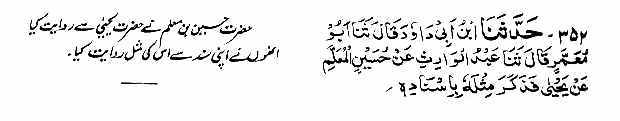 ۳۵۲- حَدَّثَنَا ابْنُ اَبِیْ دَاوٗدَ قَالَ ثَنَا اَبُوْ
مُعَمَّرٍ قَالَ ثَنَا عَبْدُ الْوَارِثِ عَنْ حُسَیْنِ الْمُعَلِّمِ
عَنْ یَحْیٰی فَذَکَرَ مِثْلَهٗ بِاِسْنَادِہٖ۔
حضرت حسین بن معلم نے حضرت یحییٰ سے روایت کیا
انھوں نے اپنی سند سے اس کی مثل روایت کیا۔